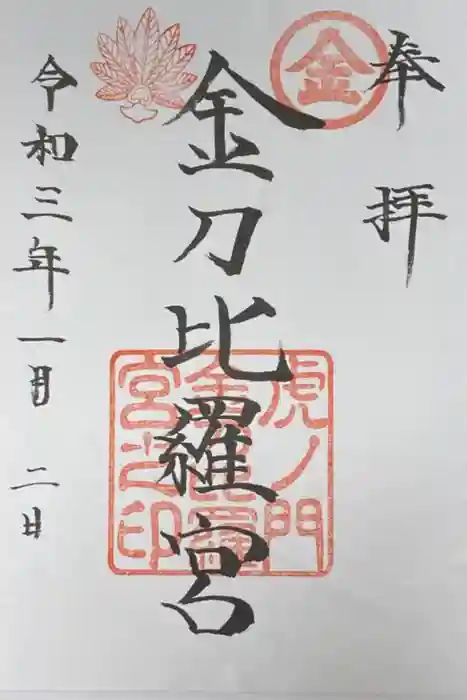 奉拝
金
金刀比羅宮
虎ノ門
金刀比羅
宮之印
令和三年一月二日